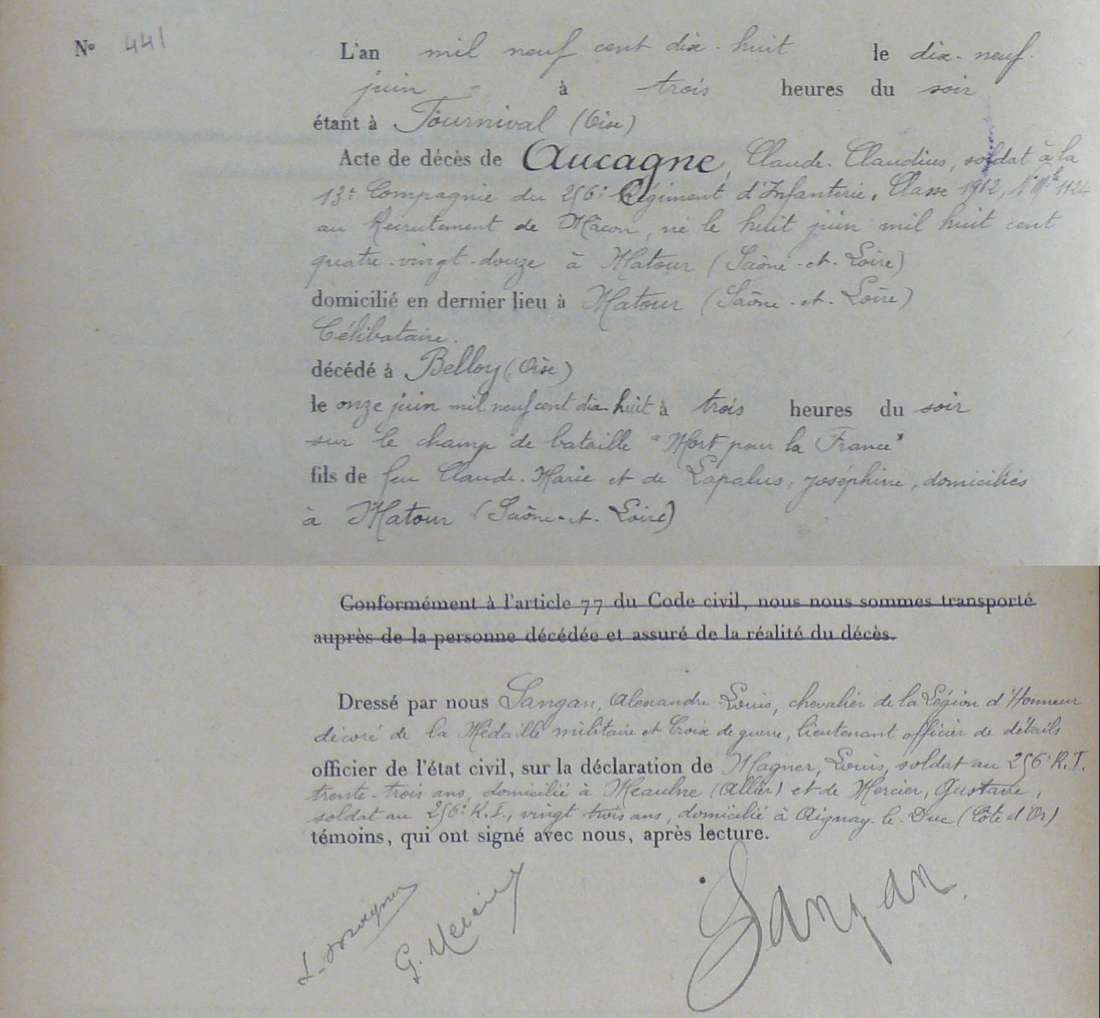 N° 441
L'an mil neuf cent dix-huit le dix-neuf
juin à trois heures du soir
étant à Fournival (Oise)
Acte de décès de Aucagne, Claude-Claudius, soldat à la
13e Compagnie du 256e Régiment d'Infanterie, Classe 1912, N° Mle 1124
au Recrutement de Mâcon, né le huit juin mil huit cent
quatre-vingt-douze à Matour (Saône-et-Loire)
domicilié en dernier lieu à Matour (Saône-et-Loire)
Célibataire.
décédé à Belloy (Oise)
le onze juin mil neuf cent dix-huit à trois heures du soir
sur le champ de bataille "Mort pour la France"
fils de feu Claude-Marie et de Lapalus, Joséphine, domiciliés
à Matour (Saône-et-Loire)
Conformément à l'article 77 du Code civil, nous nous sommes transporté
auprès de la personne décédée et assuré de la réalité du décès.
Dressé par nous Sangan, Alexandre Louis, chevalier de la Légion d'Honneur
décoré de la Médaille militaire et Croix de guerre, lieutenant officier de détails
officier de l'état civil, sur la déclaration de Magner, Louis, soldat au 256e R.I.
trente-trois ans, domicilié à Meaulne (Allier) et de Mercier, Gustave,
soldat au 256e R.I., vingt trois ans, domicilié à Aignay-le-Duc (Côte d'Or)
témoins, qui ont signé avec nous, après lecture.
L. Magner
G. Mercier
Sangan.